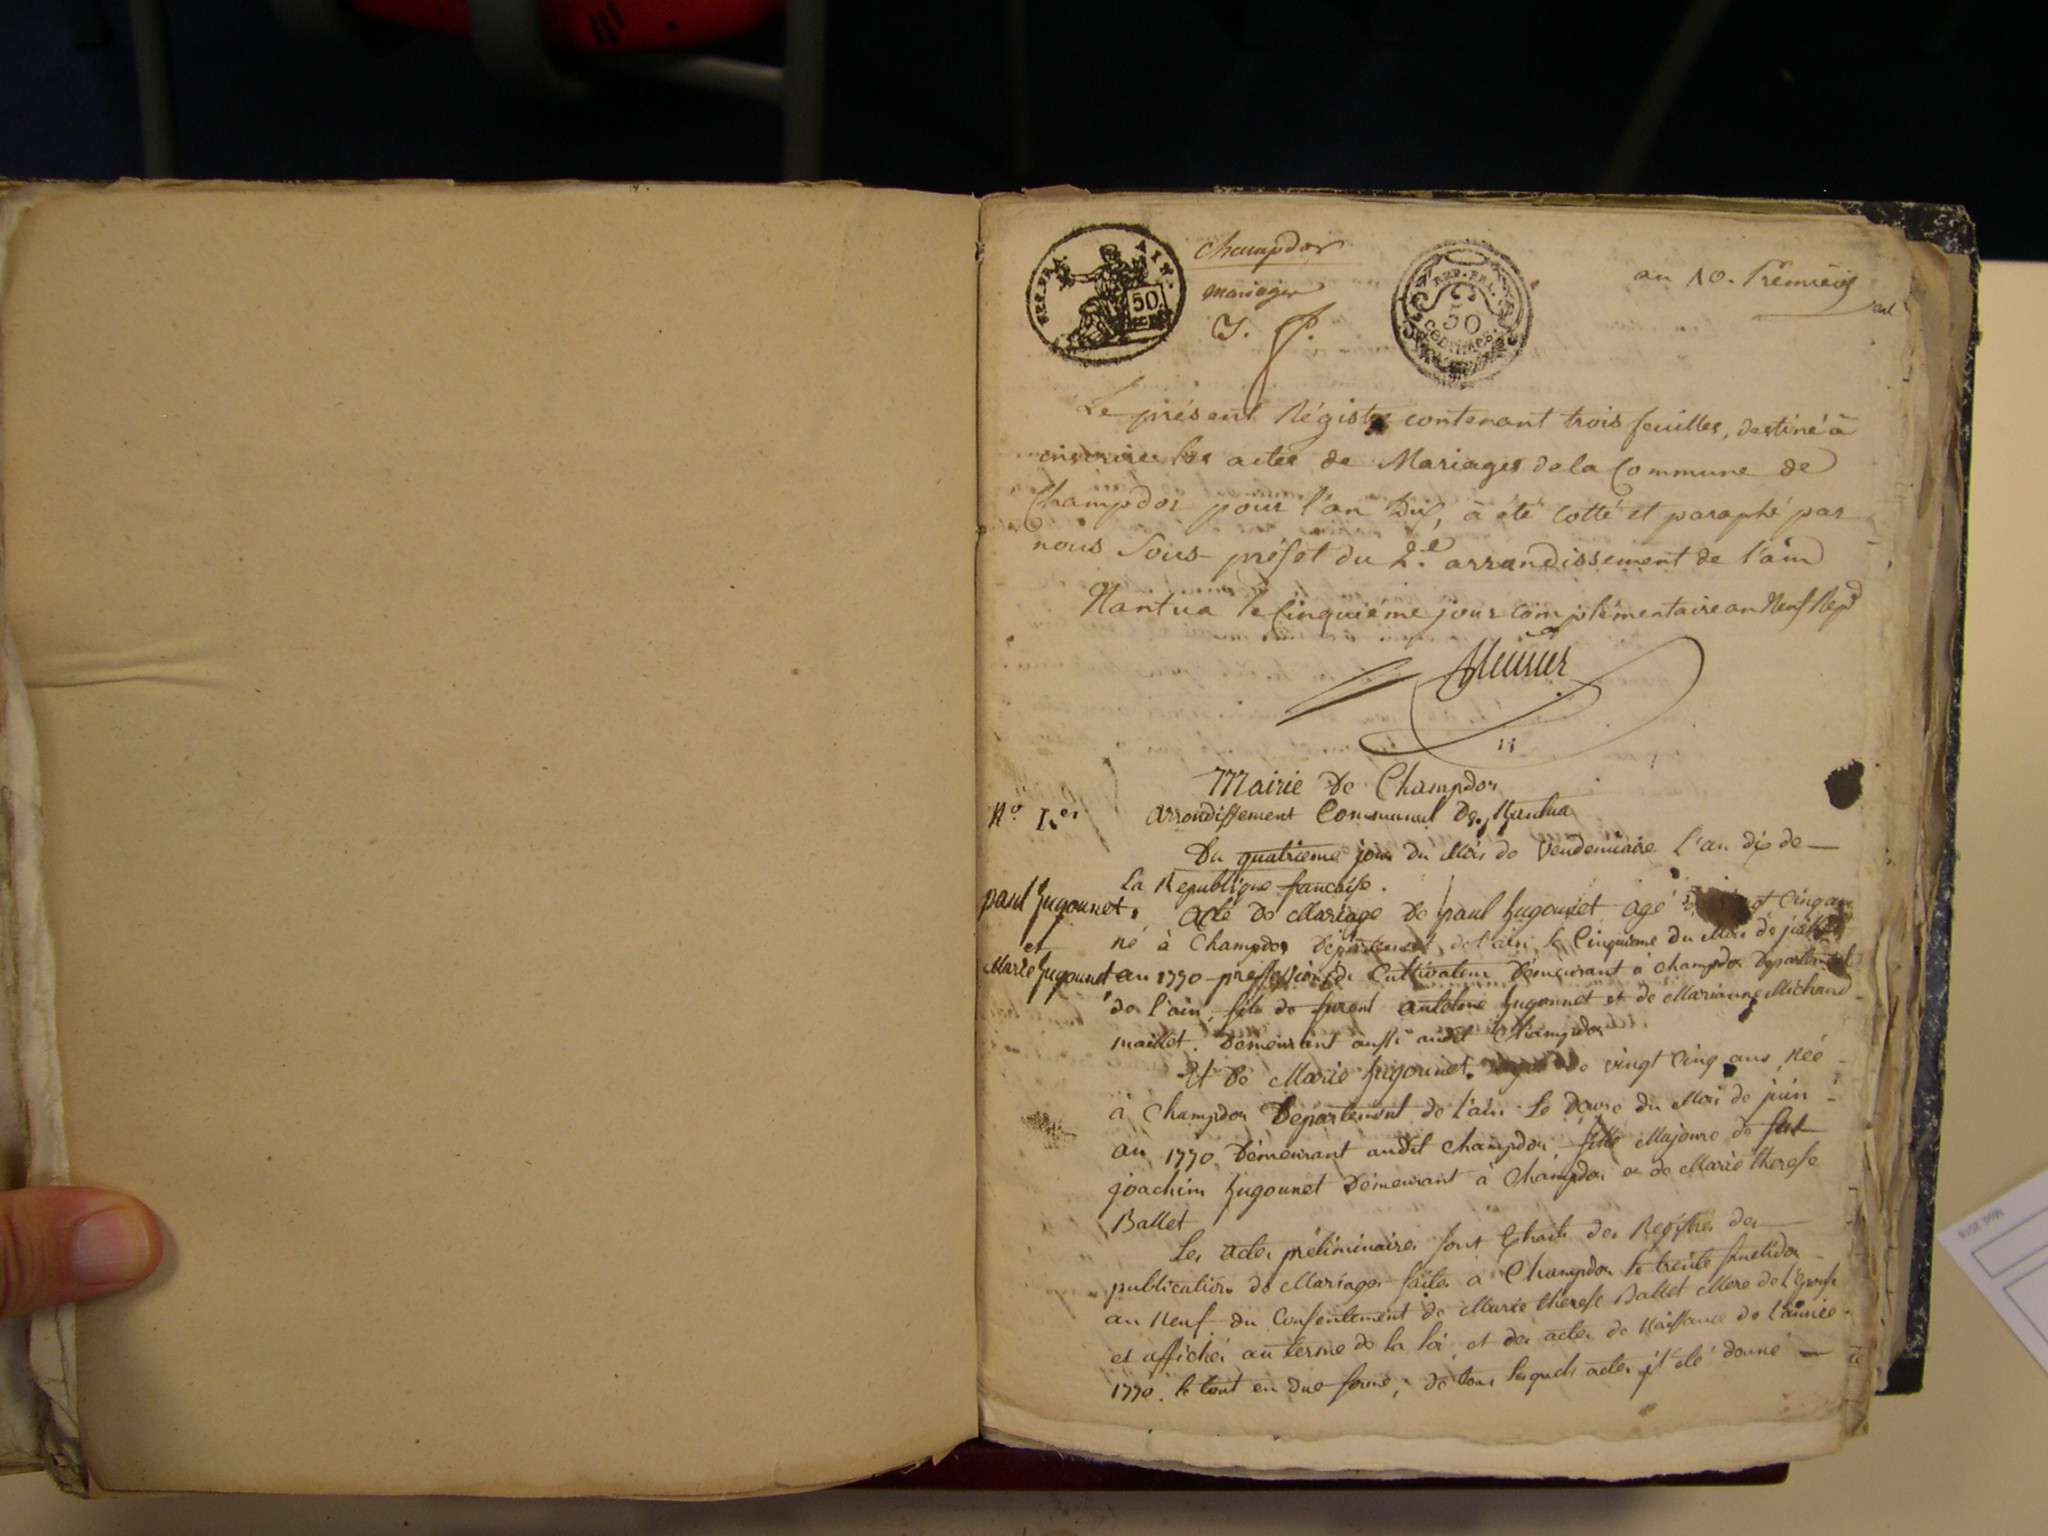 REP. FRA. AIN.
50
Champdor
mariages
REP. FRA.
50
CENTIMES.
an 10. Premier
Le présent Régistre contenant trois feuilles, destiné à
inscrire les actes de Mariages de la Commune de
Champdor pour l'an Dix, à été cotté et paraphé par
nous Sous-préfet du 2.e arrondissement de l'ain
Nantua le Cinquiéme jour complémentaire an Neuf Rep.
Mairie De Champdor
N.o 1.er
arrondissement Communal De Nantua
Du quatrieme jour Du Mois de Vendemiaire l'an dix de
La Republique francaise.
paul hugonnet.
acte De Mariage De paul hugonnet agé vingt Cinq ans
et
né à Champdor Departement de l'ain le Cinquieme du Mois de juillet
Marie hugonnet
an 1770 proffession de Cultivateur Demeurant à champdor Departement
de l'ain, fils de furent antoine hugonnet et de Marianne Michaud
maillet. Demeurant aussi audit Champdor
Et De Marie hugonnet. agée de vingt Cinq ans, née
à Champdor Departement de l'ain Le Douze du Mois de juin
an 1770, Demeurant audit champdor, fille Majeure de fut
joachim hugonnet Demeurant à Champdor et de Marie therese
Ballet
Les actes préliminaires sont Extraits des Registres des
publications de Mariages faites a Champdor le trente fructidor
an Neuf du Consentement de Marie therese Ballet Mere de l'Epouse
et affichés au terme de la loi, et des actes de Naissance de l'année
1770. le tout en due forme; de tous lesquels actes il à été donné